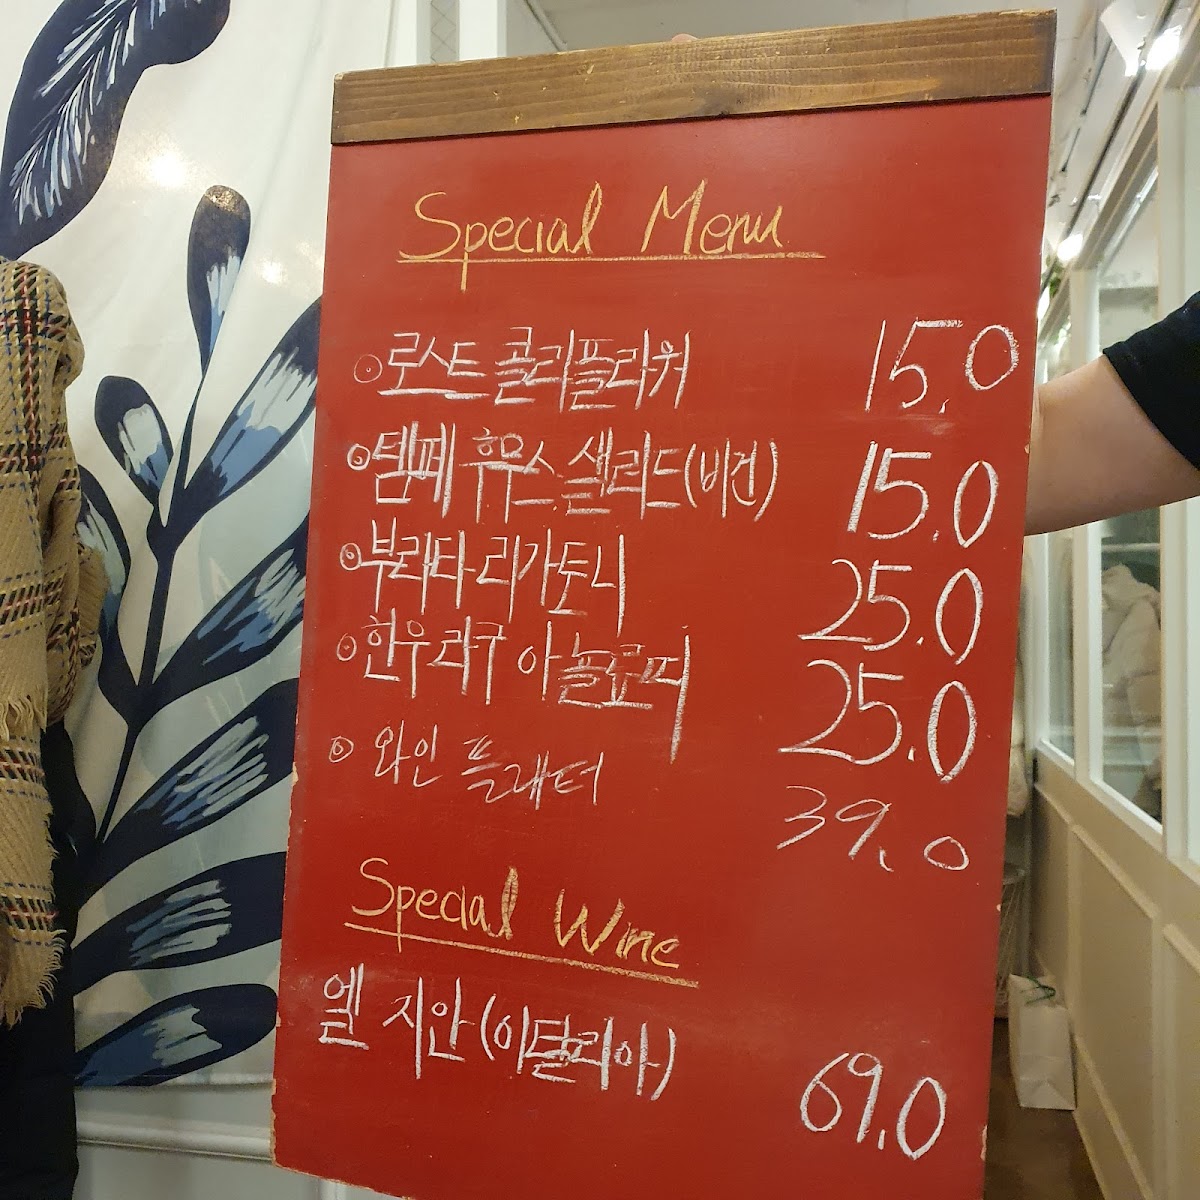 Special Menu
로스트 콜리플라워 15.0
템페 휴무스 샐러드(비건) 15.0
부라타 리가토니 25.0
한우라구 아뇰로띠 25.0
와인 플래터 39.0
Special Wine
엘 지안(이탈리아) 69.0